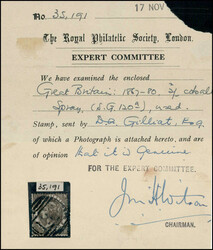 17 NOV
No. 35,191
The Royal Philatelic Society, London.
EXPERT COMMITTEE
We have examined the enclosed
Great Britain: 1867-80. 2/-
Spray, (S.G. 120), used.
Stamp, sent by B.A. Gilliat, Esq.
of which a Photograph is attached hereto, and are
of opinion that it is Genuine
FOR THE EXPERT COMMITTEE.
35,191
CHAIRMAN.